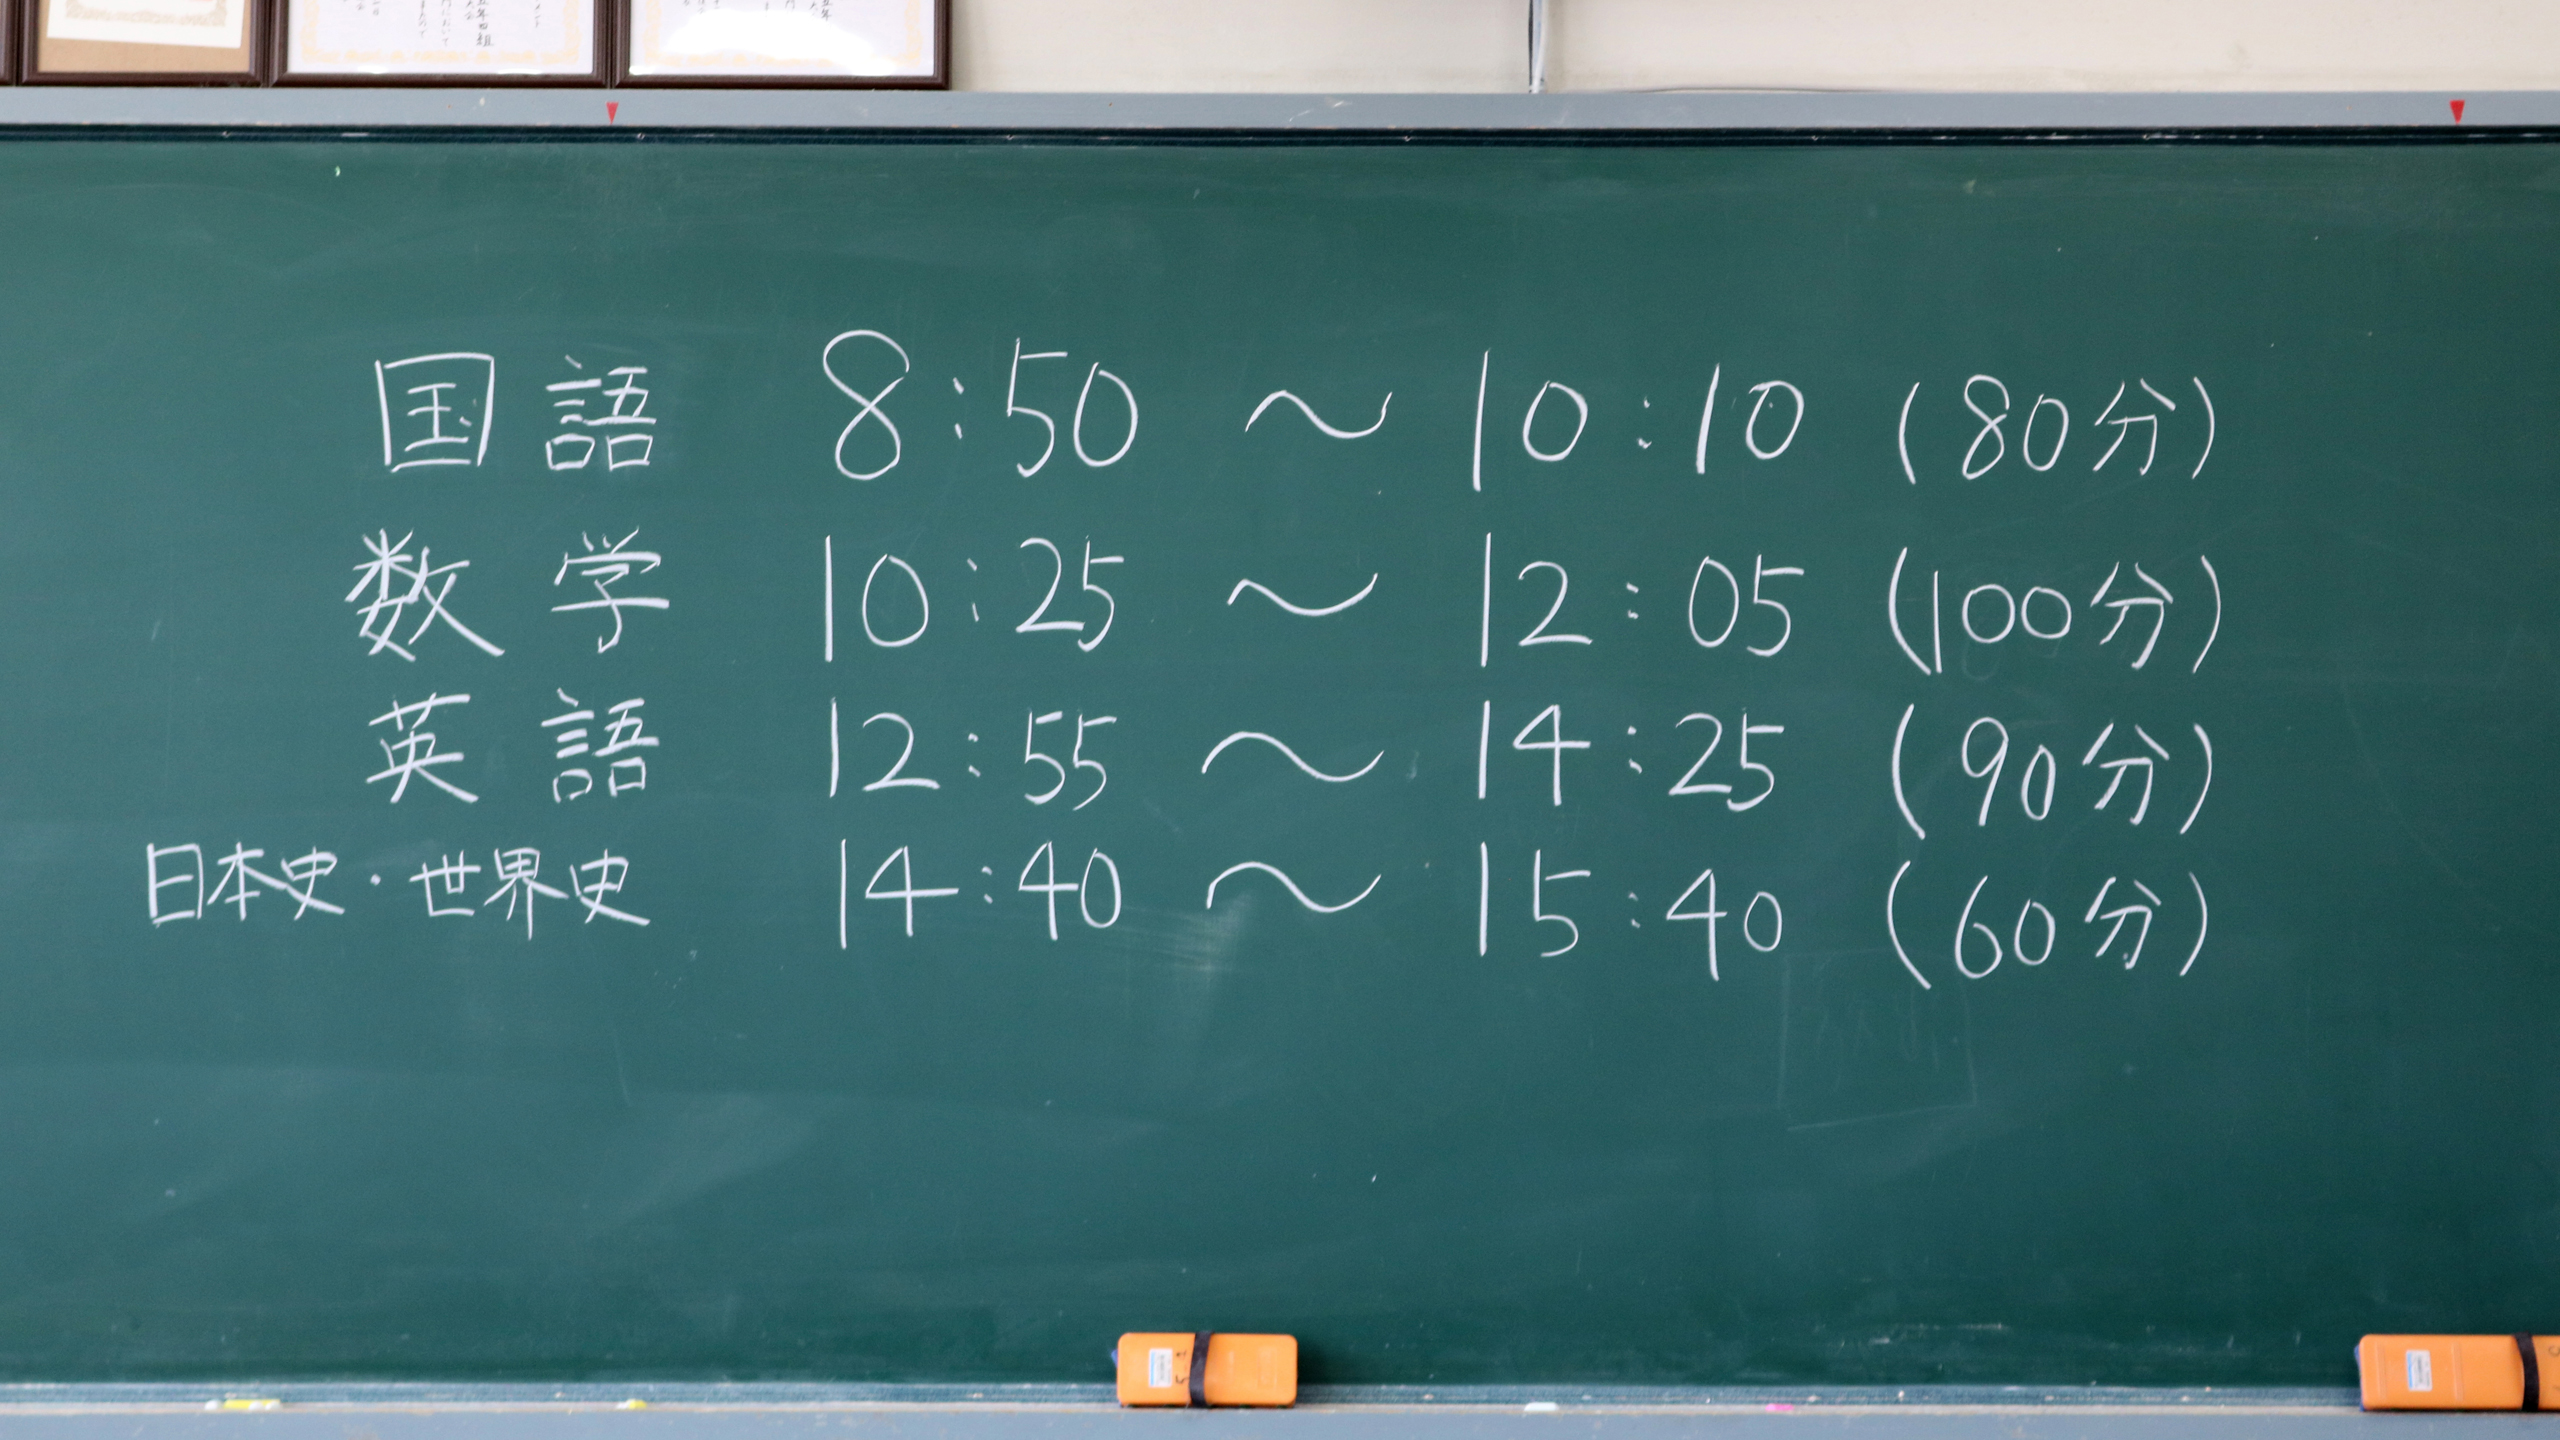 国語 8:50 〜 10:10 (80分)
数学 10:25 〜 12:05 (100分)
英語 12:55 〜 14:25 (90分)
日本史・世界史 14:40 〜 15:40 (60分)